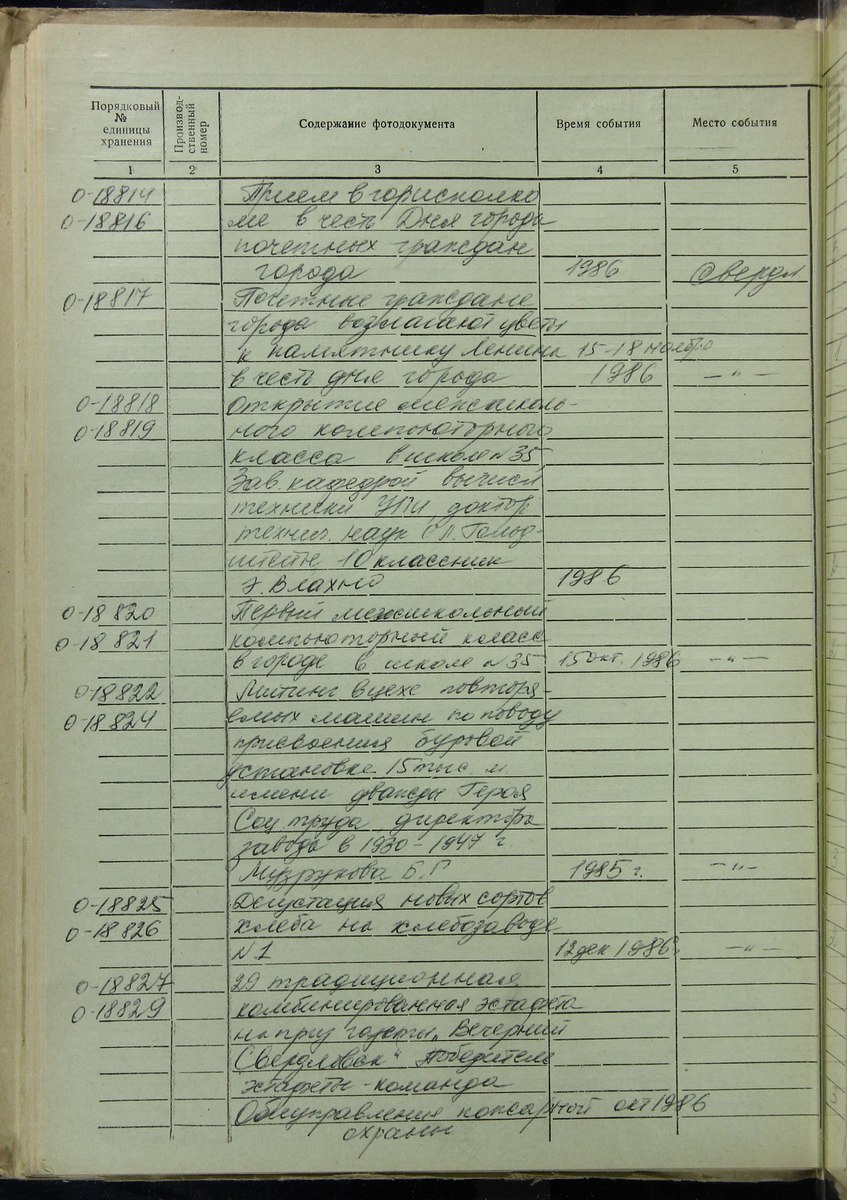 Порядковый № единицы хранения
Производ-ственный номер
Содержание фотодокумента
Время события
Место события
1 2 3 4 5
0-18814 Прием в горисполко
0-18816 ме в честь Дня города
почетных граждан
города 1986 Свердл
0-18817 Почетные граждане
города возлагают цветы
к памятнику Ленина 15-18 ноября
в честь дня города 1986 —"—
0-18818 Открытие межшколь-
0-18819 ного компьюторного
класса в школе N 35
Зав. кафедрой вычисл
техники УПИ, доктор
технич. наук С.Л. Гольд-
штейн 10 классник
1986
0-18820 Первый межшкольный
0-18821 компьюторный класс
в городе в школе N 35 15 окт. 1986 —"—
0-18822 Митинг в цехе повторя-
0-18824 емых машин по поводу
присвоения буровой
установке 15 тыс. м
имени дважды Героя
Соц. труда директора
завода в 1930-1947 г.
Музрукова Б.Г 1985 г. —"—
0-18825 Дегустация новых сортов
0-18826 хлеба на хлебозаводе
N 1 12 дек 1986 —"—
0-18827 29 традиционная
0-18829 комбинированная эстафета
на приз газеты „Вечерний
Свердловск“ Победители
эстафеты - команда
Облуправления пожарной окт 1986
охраны